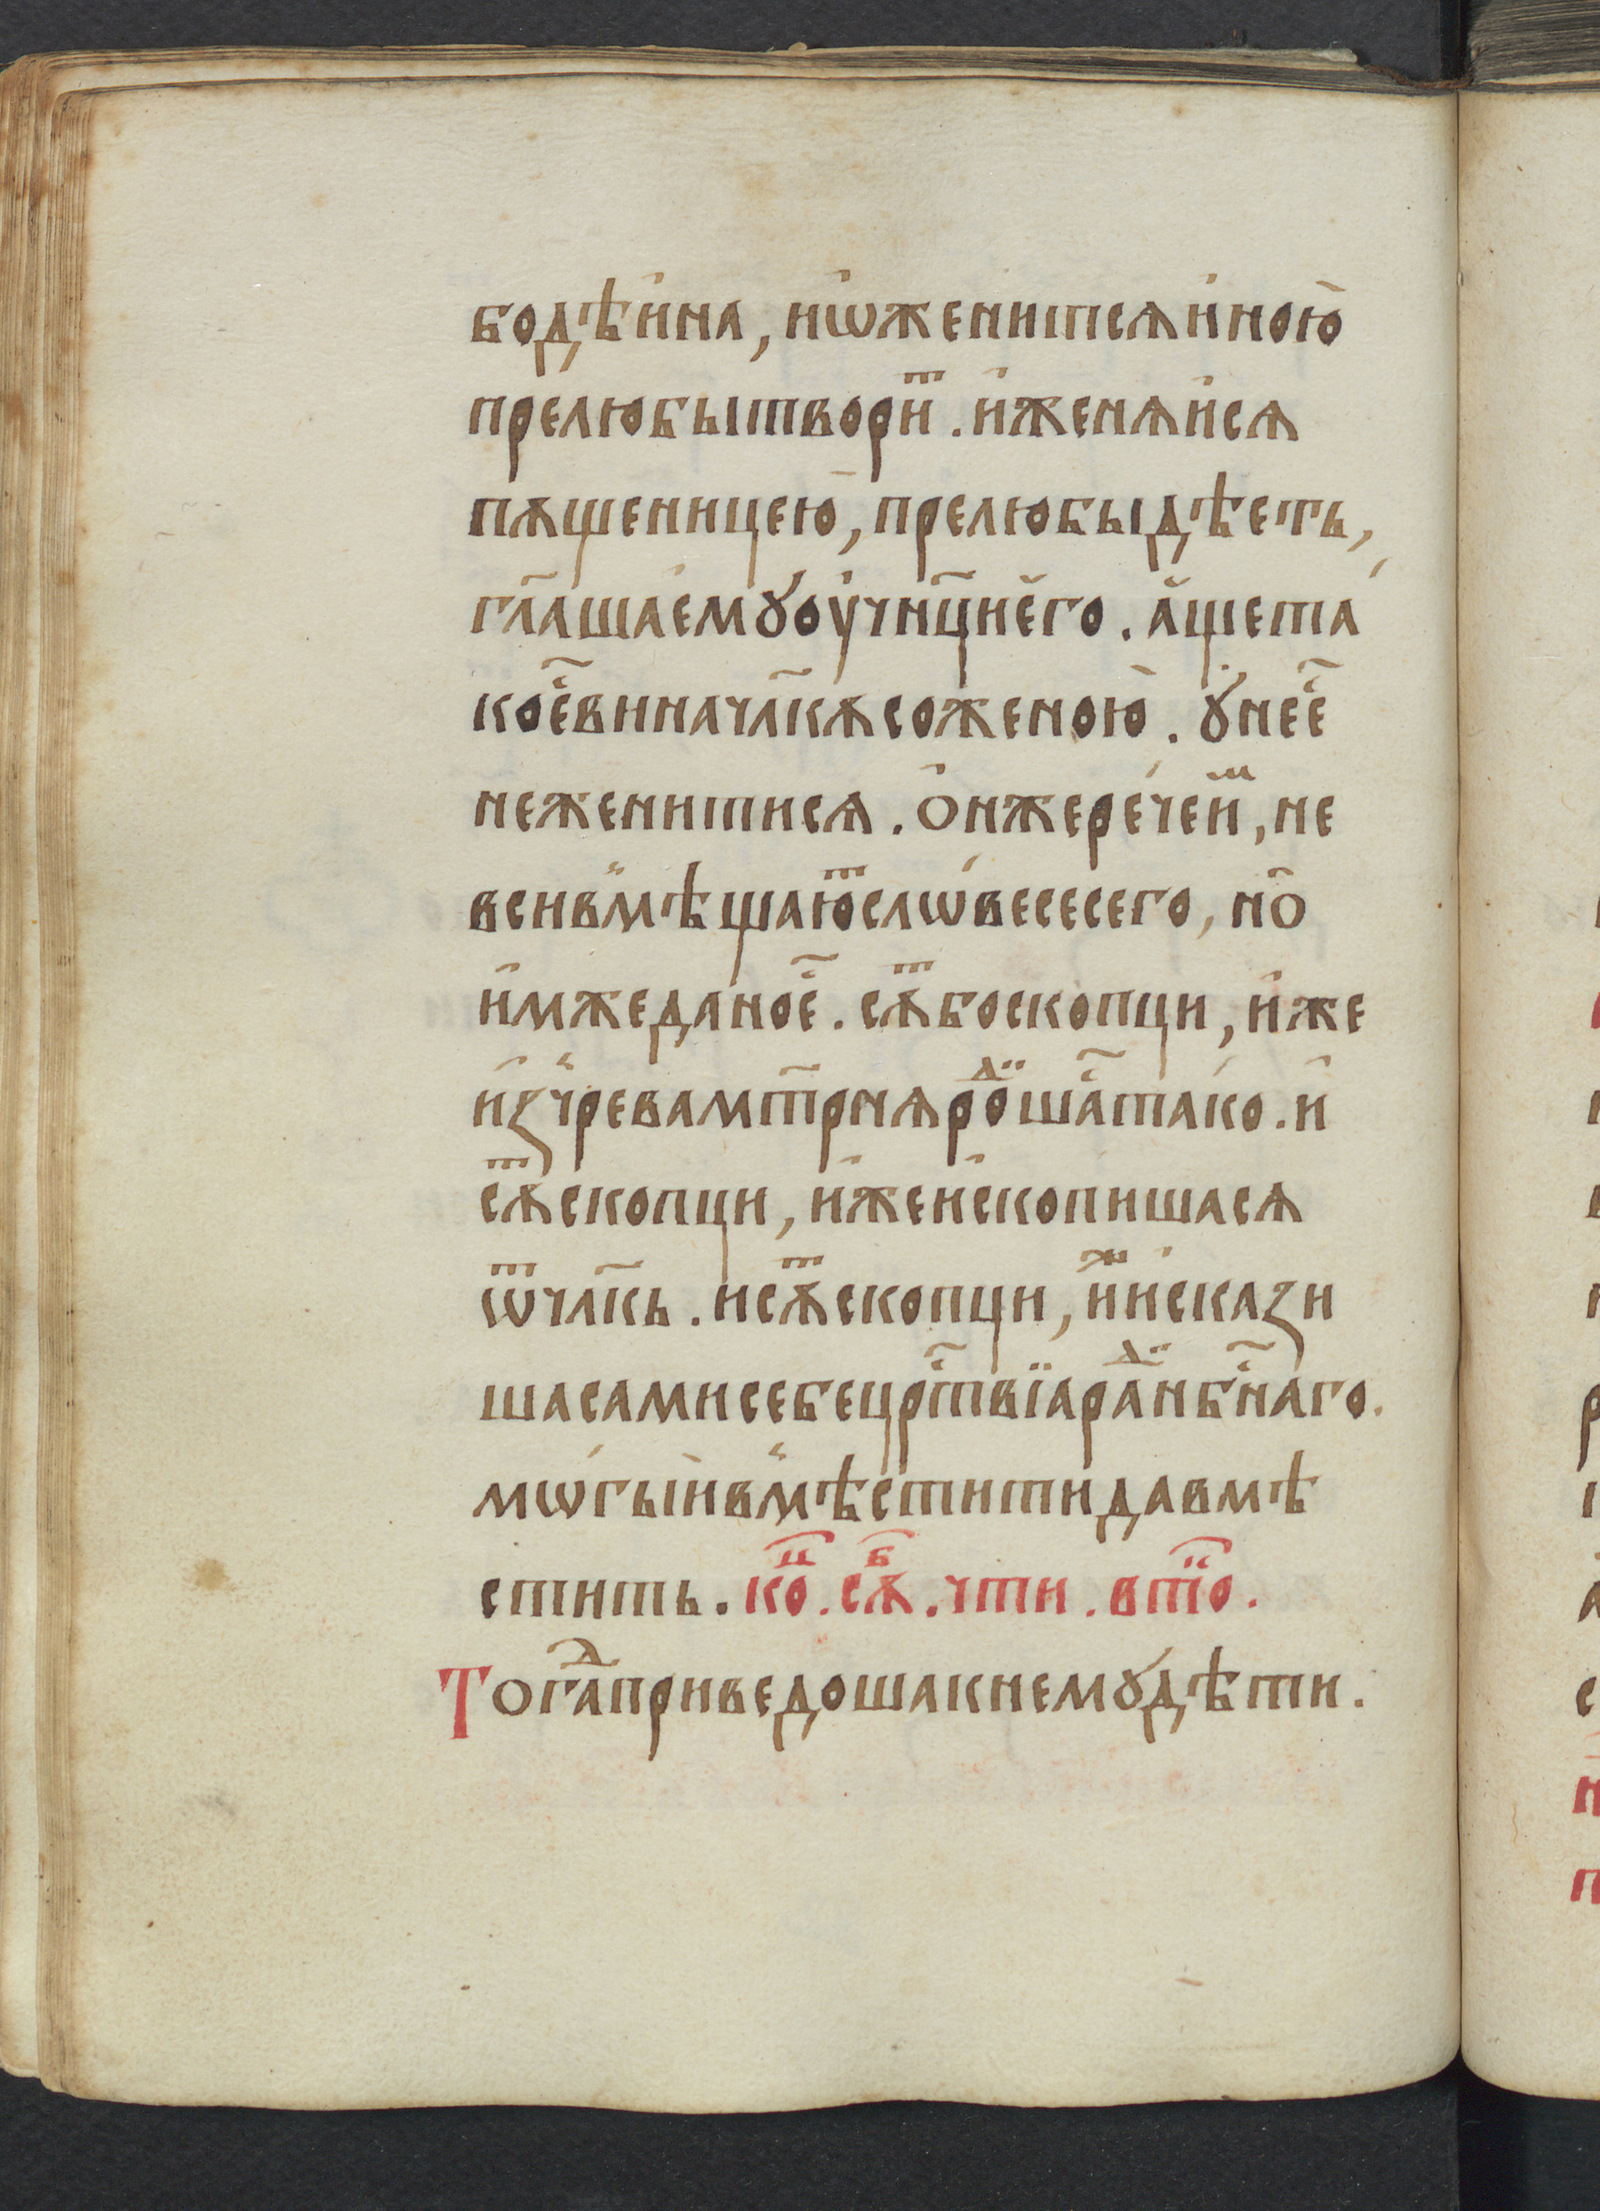 бодѣ́инаⷤ, иѡ҆женитсѧи҆ною҆
прелюбытвориⷮ. и҆женѧи҆сѧ
пѧщеницею, прелюбыдѣеть,
гл҃ашаемꙋоу҆чн҃цие҆го. а҆щета
коеⷭ҇виначл҃кꙋсоженою. ꙋ҆неⷭ҇е
неженитисѧ. О҆нжеречеиⷨ, не
всивⸯмѣщаюⷮслѡ́весесего, но҆
и҆мжеданоеⷭ҇. сѫⷮбоскопци, и҆же
и҆зⸯчревамт҃рнѧроⷣишаⷭ҇тако. и҆
сѫⷮскопци, и҆жеи҆скопишасѧ
ѿчл҃кь. исѫⷮскопци, и҆ⷤи҆скази
шасамисебецрⷭ҇твїараⷣинбⷭ҇наго.
мѡ́гыи҆вⸯмѣстити́давмѣ
стить. коⷰ. сѫⷠ. чти. втⷪ҇о.
Тогаⷣприведошакнемꙋдѣти.